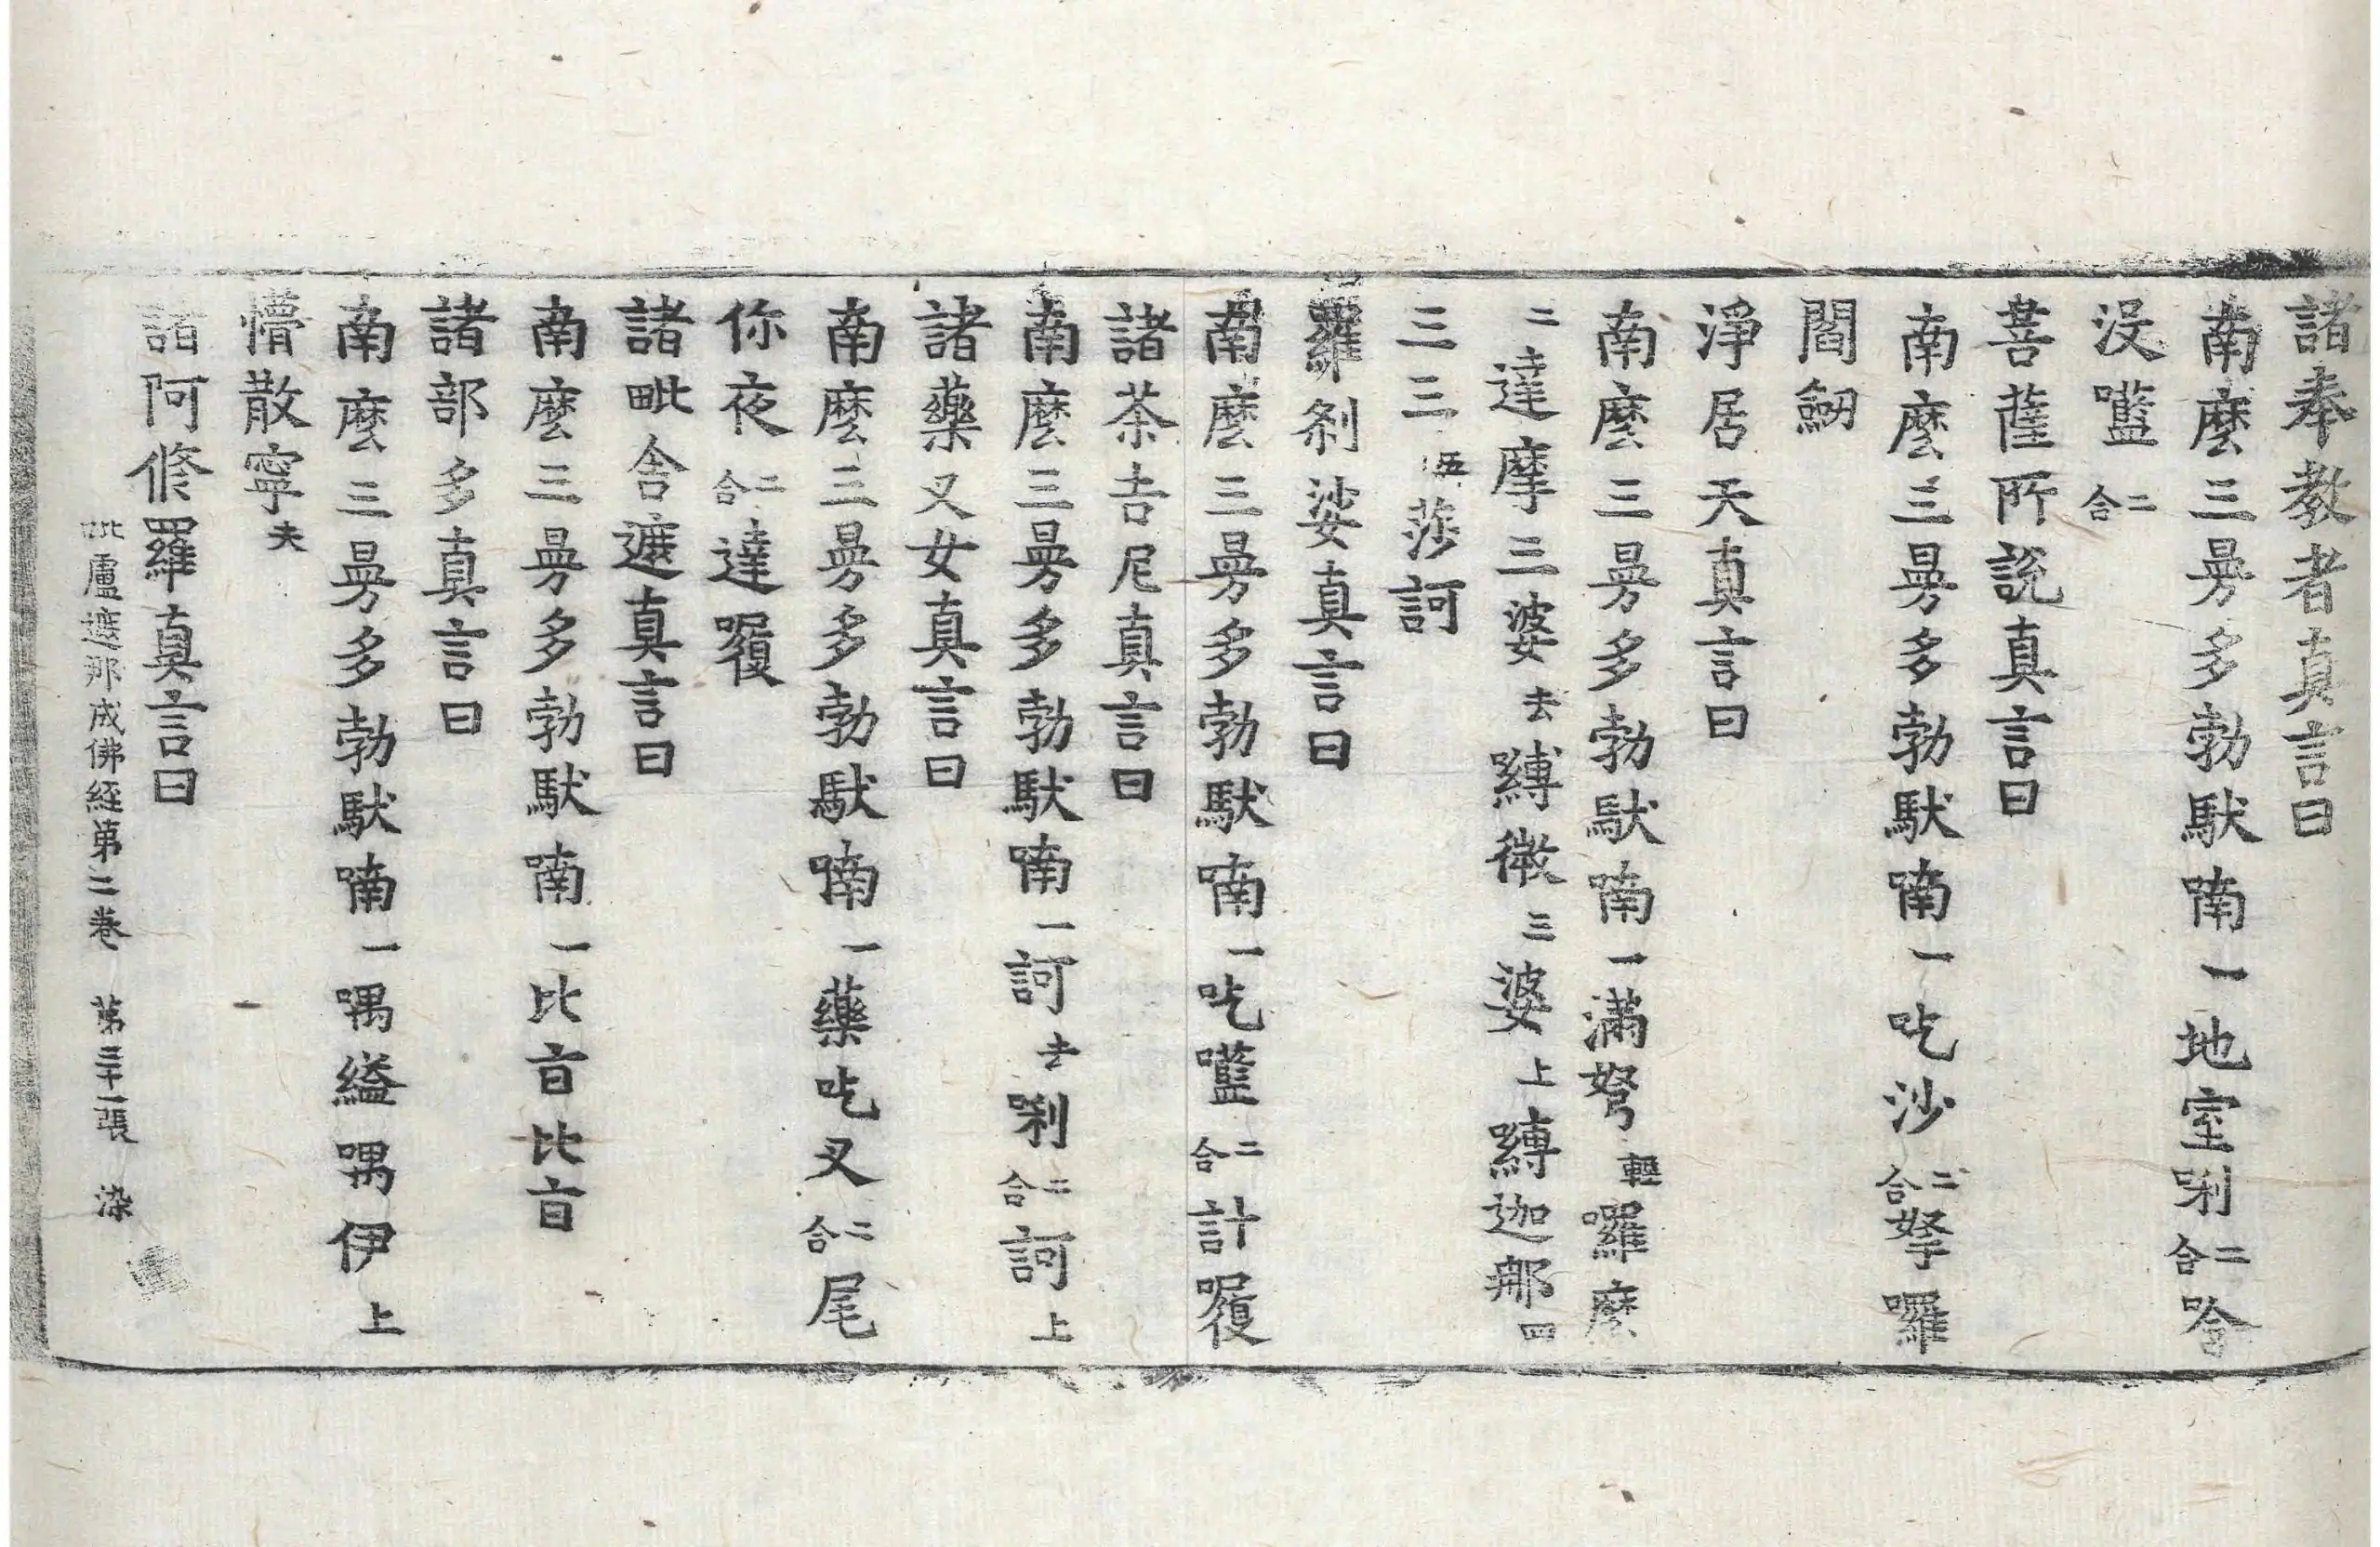 諸奉教者真言曰
南麼三曼多勃馱喃一地室唎二合唅
沒㘕二合
菩薩所說真言曰
南麼三曼多勃馱喃一吃沙二合拏囉
閻劒
淨居天真言曰
南麼三曼多勃馱喃一滿弩輕囉麼
二達摩三婆去嚩微三婆上嚩迦那四
三三五莎訶
羅剎娑真言曰
南麼三曼多勃馱喃一吃㘕二合計履
諸茶吉尼真言曰
南麼三曼多勃馱喃一訶去唎二合訶上
諸藥叉女真言曰
南麼三曼多勃馱喃一藥吃叉二合尾
你夜二合達囇
諸毗舍遮真言曰
南麼三曼多勃馱喃一比旨比旨
諸部多真言曰
南麼三曼多勃馱喃一喁縊喁伊上
懵散寧夫
諸阿修羅真言曰
毗盧遮那成佛經第二卷 第三十一張 染